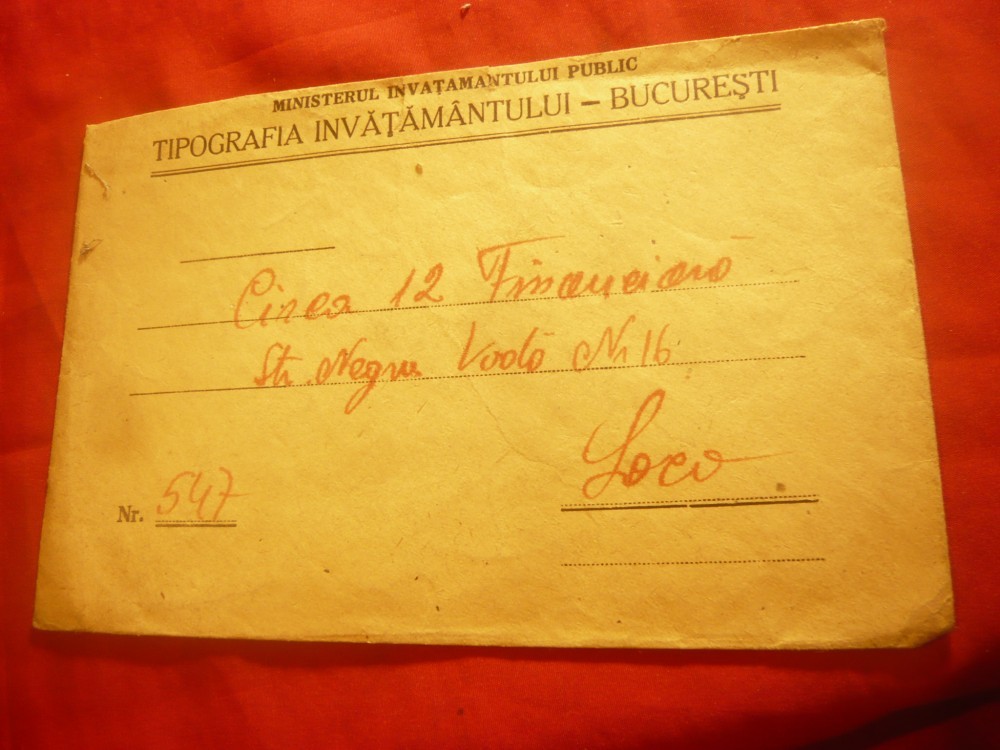 MINISTERUL INVAȚAMANTULUI PUBLIC
TIPOGRAFIA INVĂȚĂMÂNTULUI – BUCUREȘTI
Circa 12 Financiară
Str. Negru Vodă Nr 16
Loco
Nr. 547